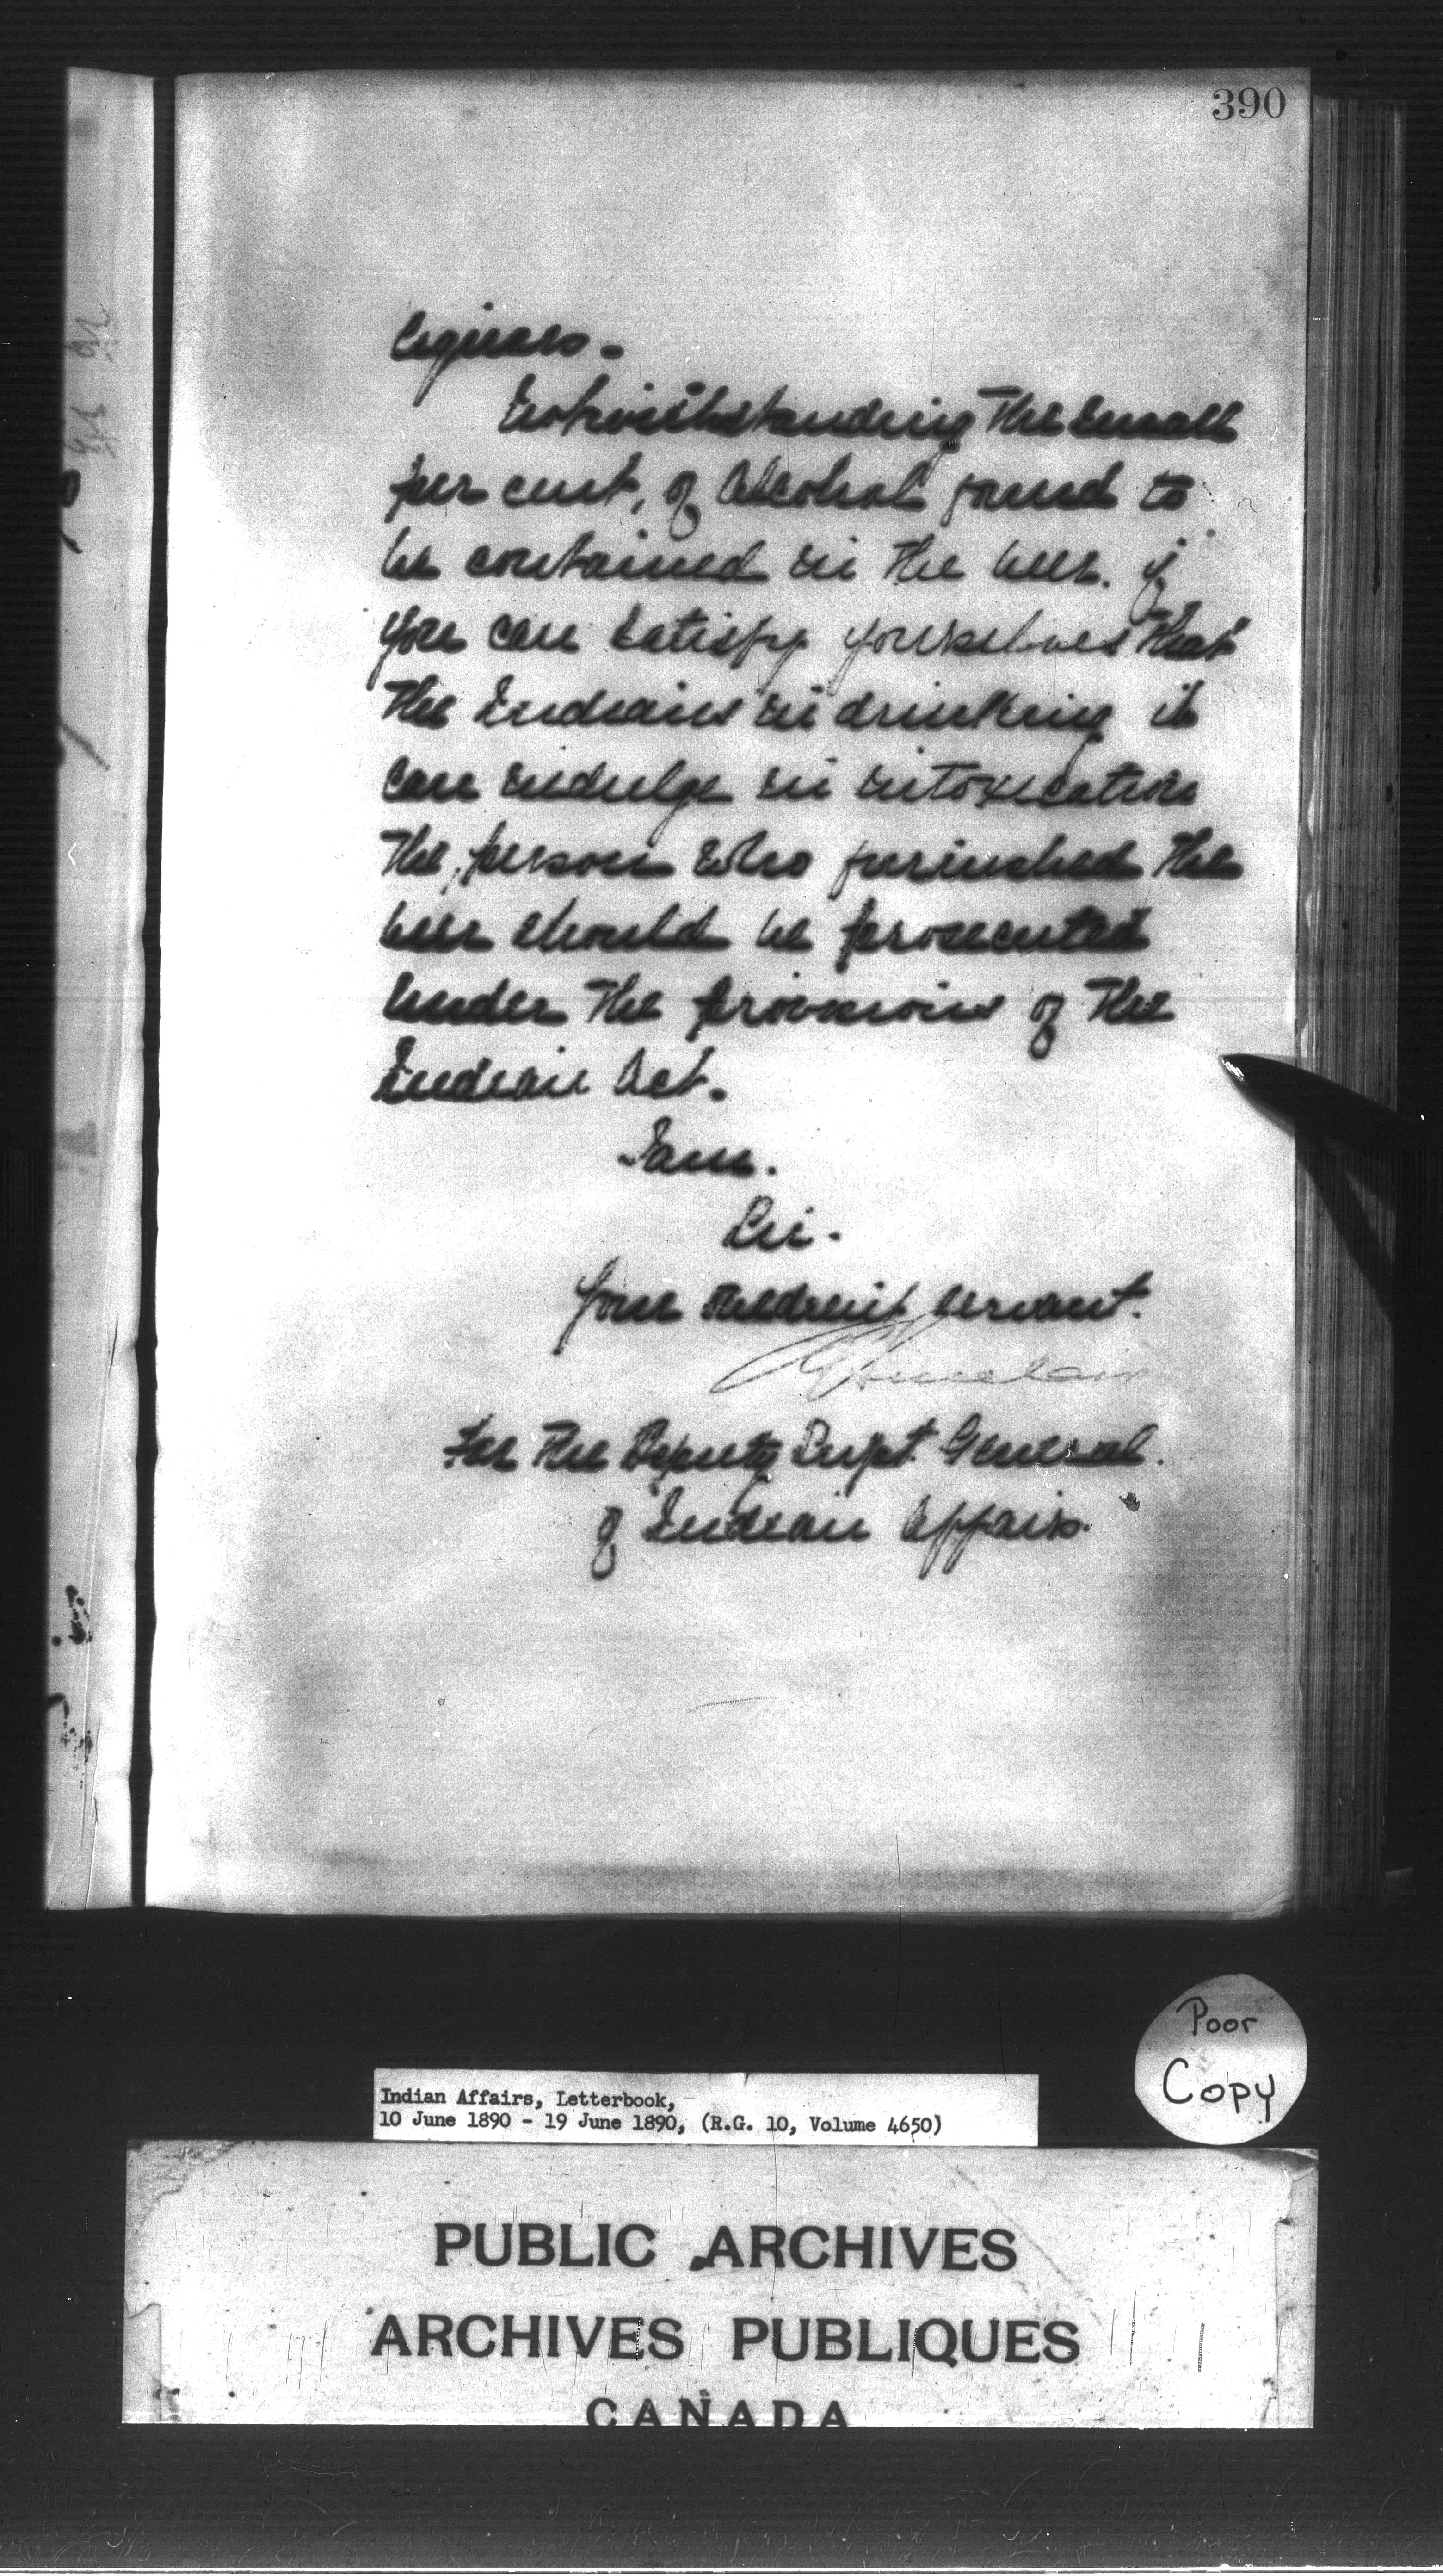 390
liquors.
Notwithstanding the small
per cent, of alcohol found to
be contained in the beer. if
you can satisfy yourselves that
the Indians in drinking it
can indulge in intoxication
the person who furnished the
beer should be prosecuted
under the provisions of the
Indian Act.
I am.
Sir.
Your obedient servant.
Sinclair
For the Deputy Supt. General.
of Indian Affairs.
Poor
Copy
Indian Affairs, Letterbook,
10 June 1890 - 19 June 1890, (R.G. 10, Volume 4650)
PUBLIC ARCHIVES
ARCHIVES PUBLIQUES
CANADA